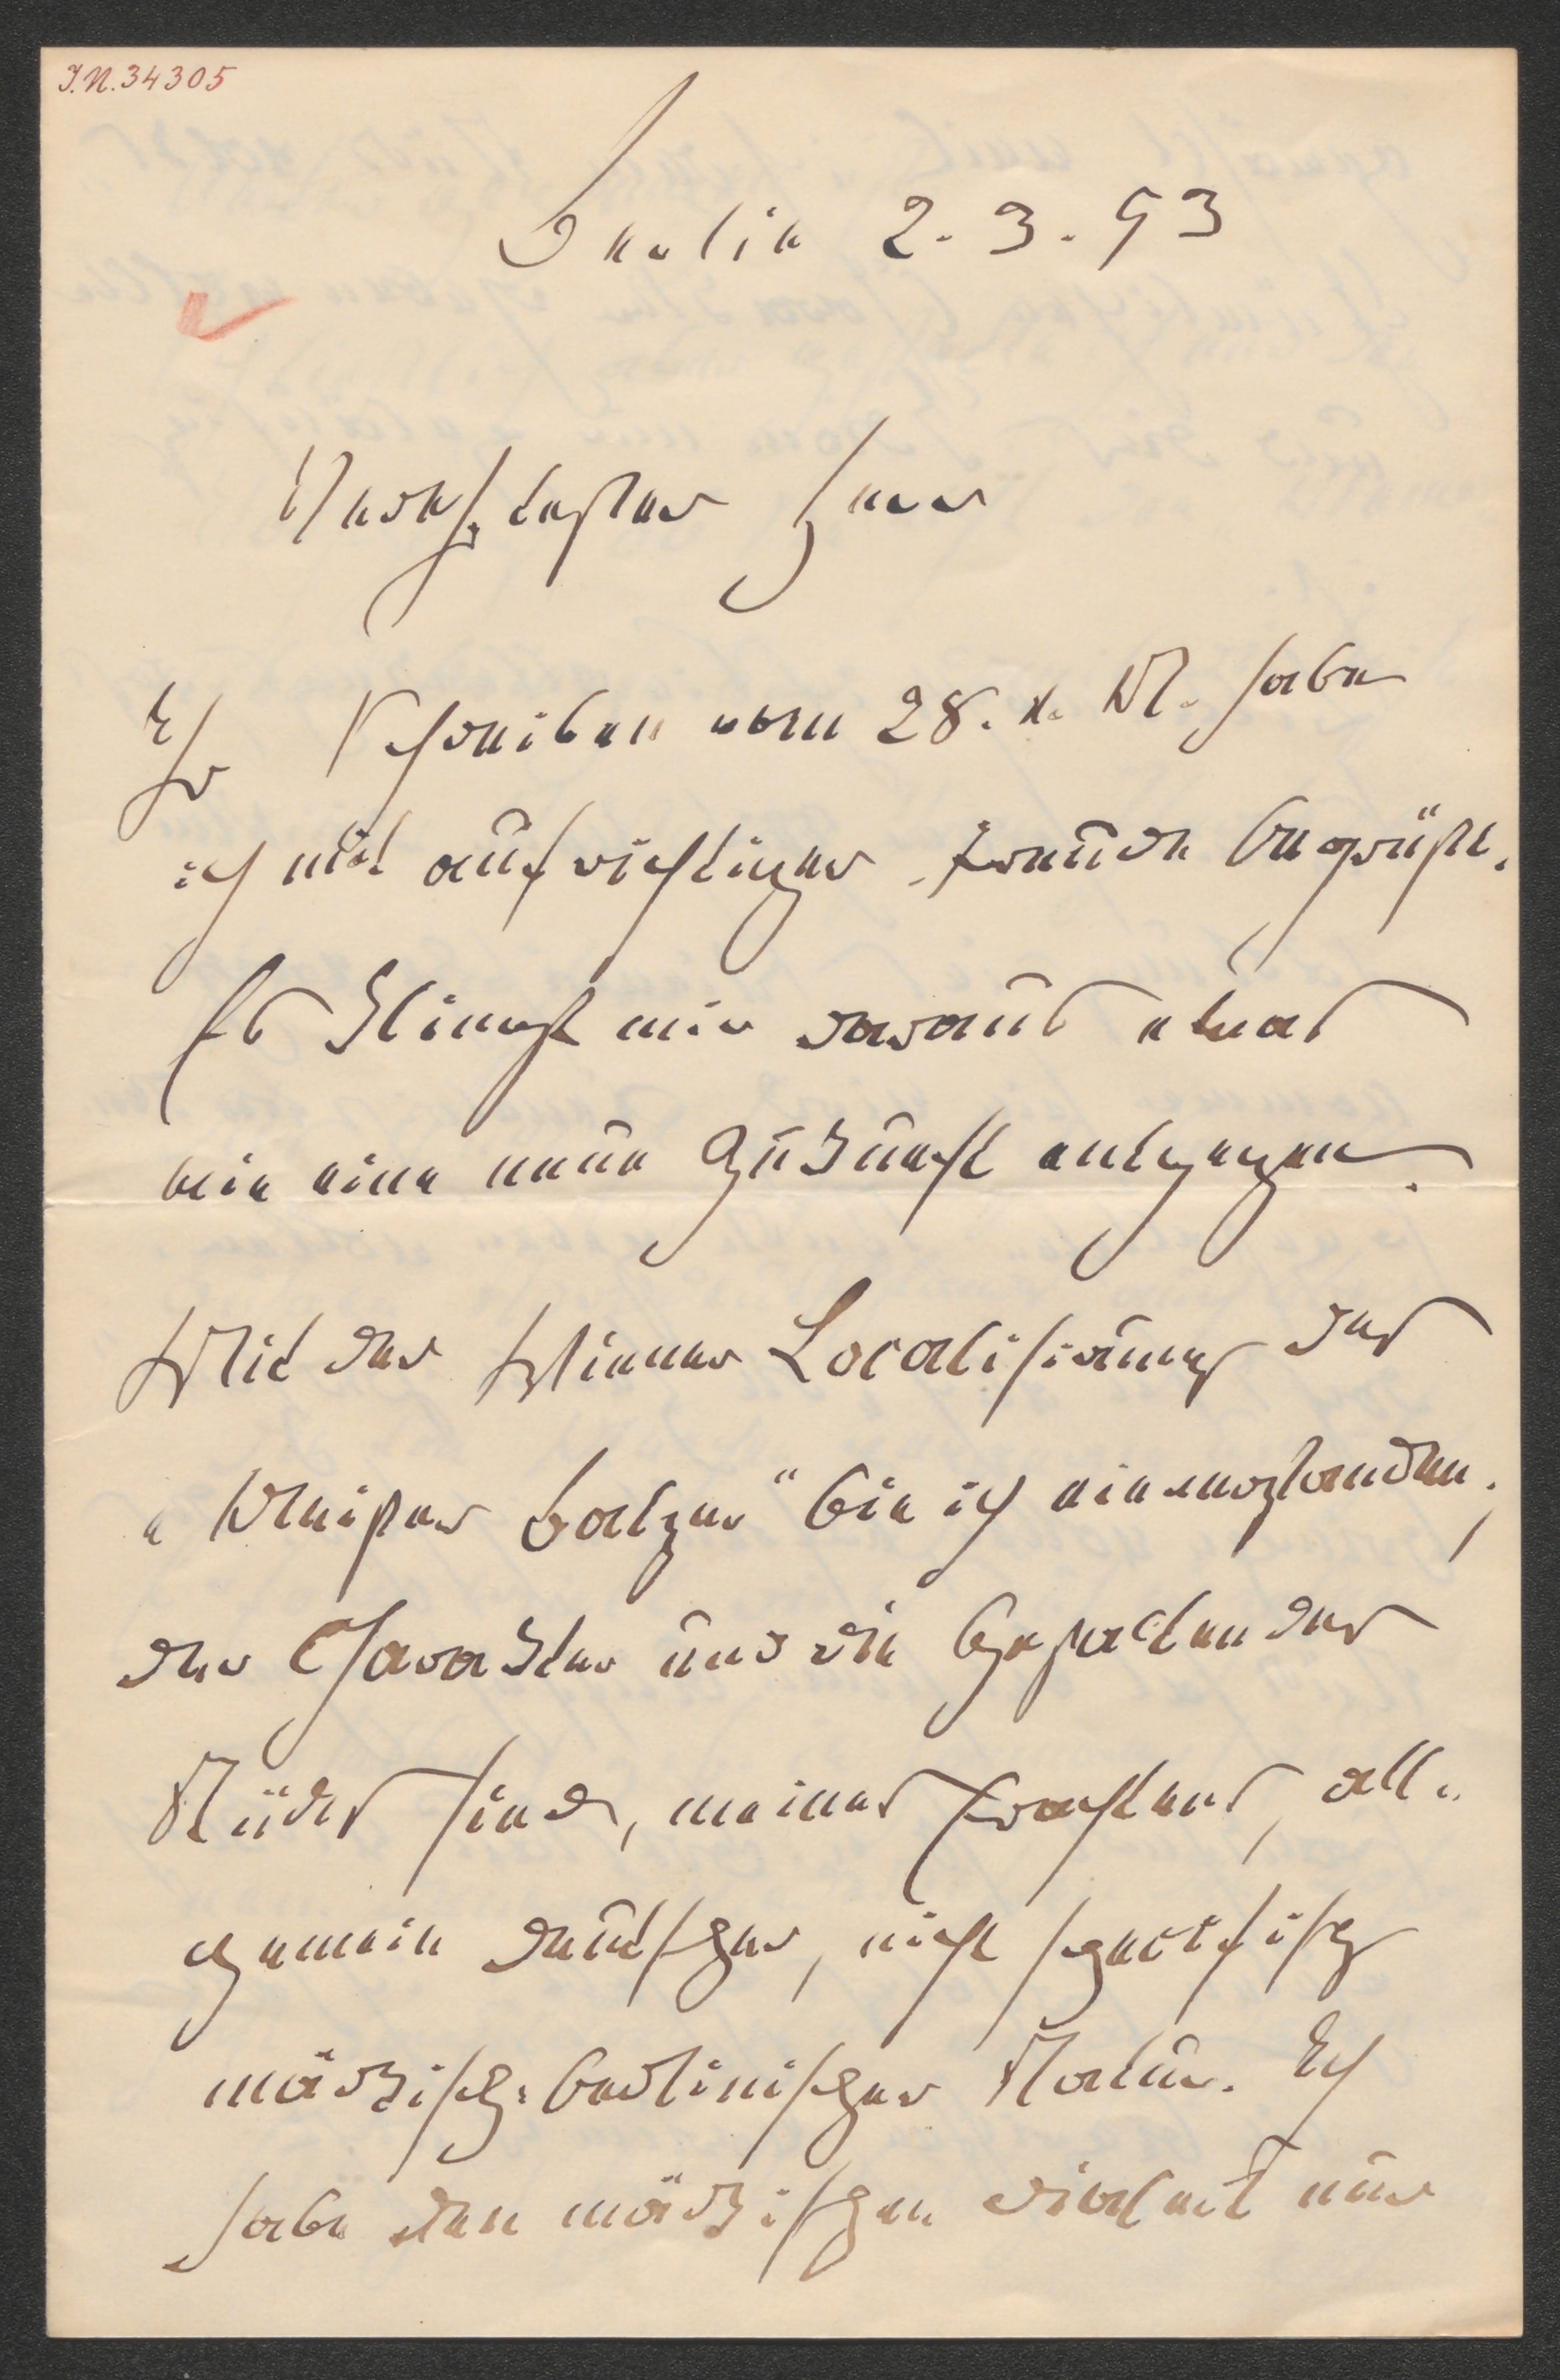 J.N. 34305
Berlin 2. 3. 93
Verehrtester Herr
Ihr Schreiben vom 28. v. M. habe
ich mit aufrichtiger Freude begrüßt.
Es klingt mir daraus etwas
wie eine neue Zukunft entgegen.
Mit der Wiener Localisirung des
„Meister Balzer" bin ich einverstanden;
der Charakter und die Gestalten des
Stückes sind, meines Erachtens, all-
gemein deutscher, nicht specifisch
märkisch-berlinischer Natur. Ich
habe den märkischen Dialect nur